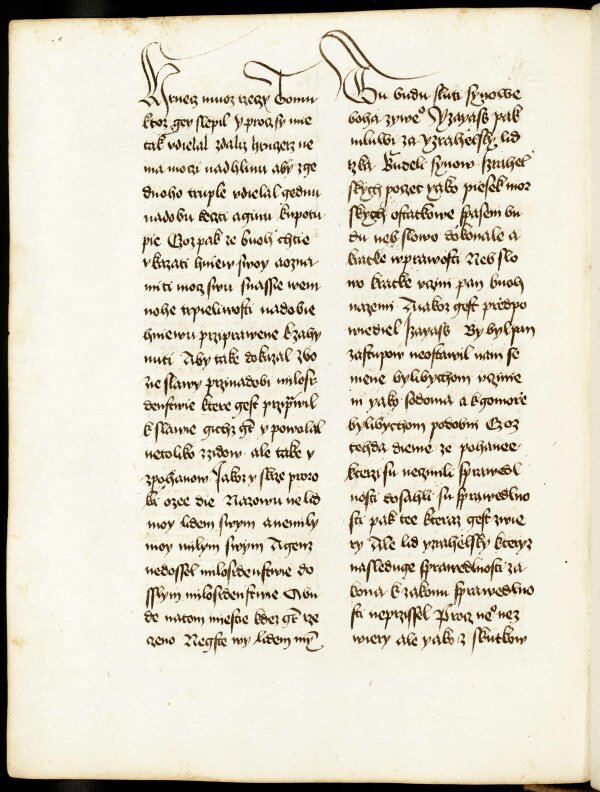 hrnecz muoz rzeczy Tomu
ktoz gey slepil y procz sy mie
tak vdielal zdaliz hrnczerz ne
ma moczi nad hlinu aby z ge
dnoho truple vdielal gednu
nadobu keczti a ginu k upotu
pie Czoz pak ze buoh chtie
vkazati hniew swoy a ozna
miti mocz swu snasse wem
nohe trpieliwosti nadobie
hniewu prziprawene k zahy
nuti Aby take dokazal zbo
zie slawy przinadobi milosr
denstwie ktere gest przip̄rwil
k slawie gichz gt̄ y powolal
netoliko z zidow ale take y
z pohanow Jakoz y skrze proro
ka ozee die Nazowu ne lid
moy lidem swym a nemily
moy milym swym A genz
nedossel milosrdenstwie do
sslym milosrdenstwie A bu
de na tom miestie kdez gt̄ rze
czeno Negste wy lidem mȳ
Tu budu sluti synowe
boha zyweᵒ Yzayass pak
mluwi za yzrahelsky lid
rzka Budeli synow Izrahel
skych poczet yako piesek mor
skych ostatkowe spasem bu
du neb slowo dokonale a
kratke w prawosti Neb slo
wo kratke vczini pan buoh
na zemi A yakoz gest przedpo
wiediel Izayass By byl pan
zastupow neostawil nam se
mene bylibychom vczinie
ni yako sodoma a k gomorze
bylibychom podobni Czoz
tehda dieme ze pohanee
kterzi su neczinili sprawedl
nosti dosahli su sprawedlno
sti pak tee kteraz gest z wie
ry Ale lid yzrahelsky kteryz
nasleduge sprawedlnosti za
kona k zakonu sprawedlno
sti neprzissel Procz neᵒ nez
wiery ale yako z skutkow